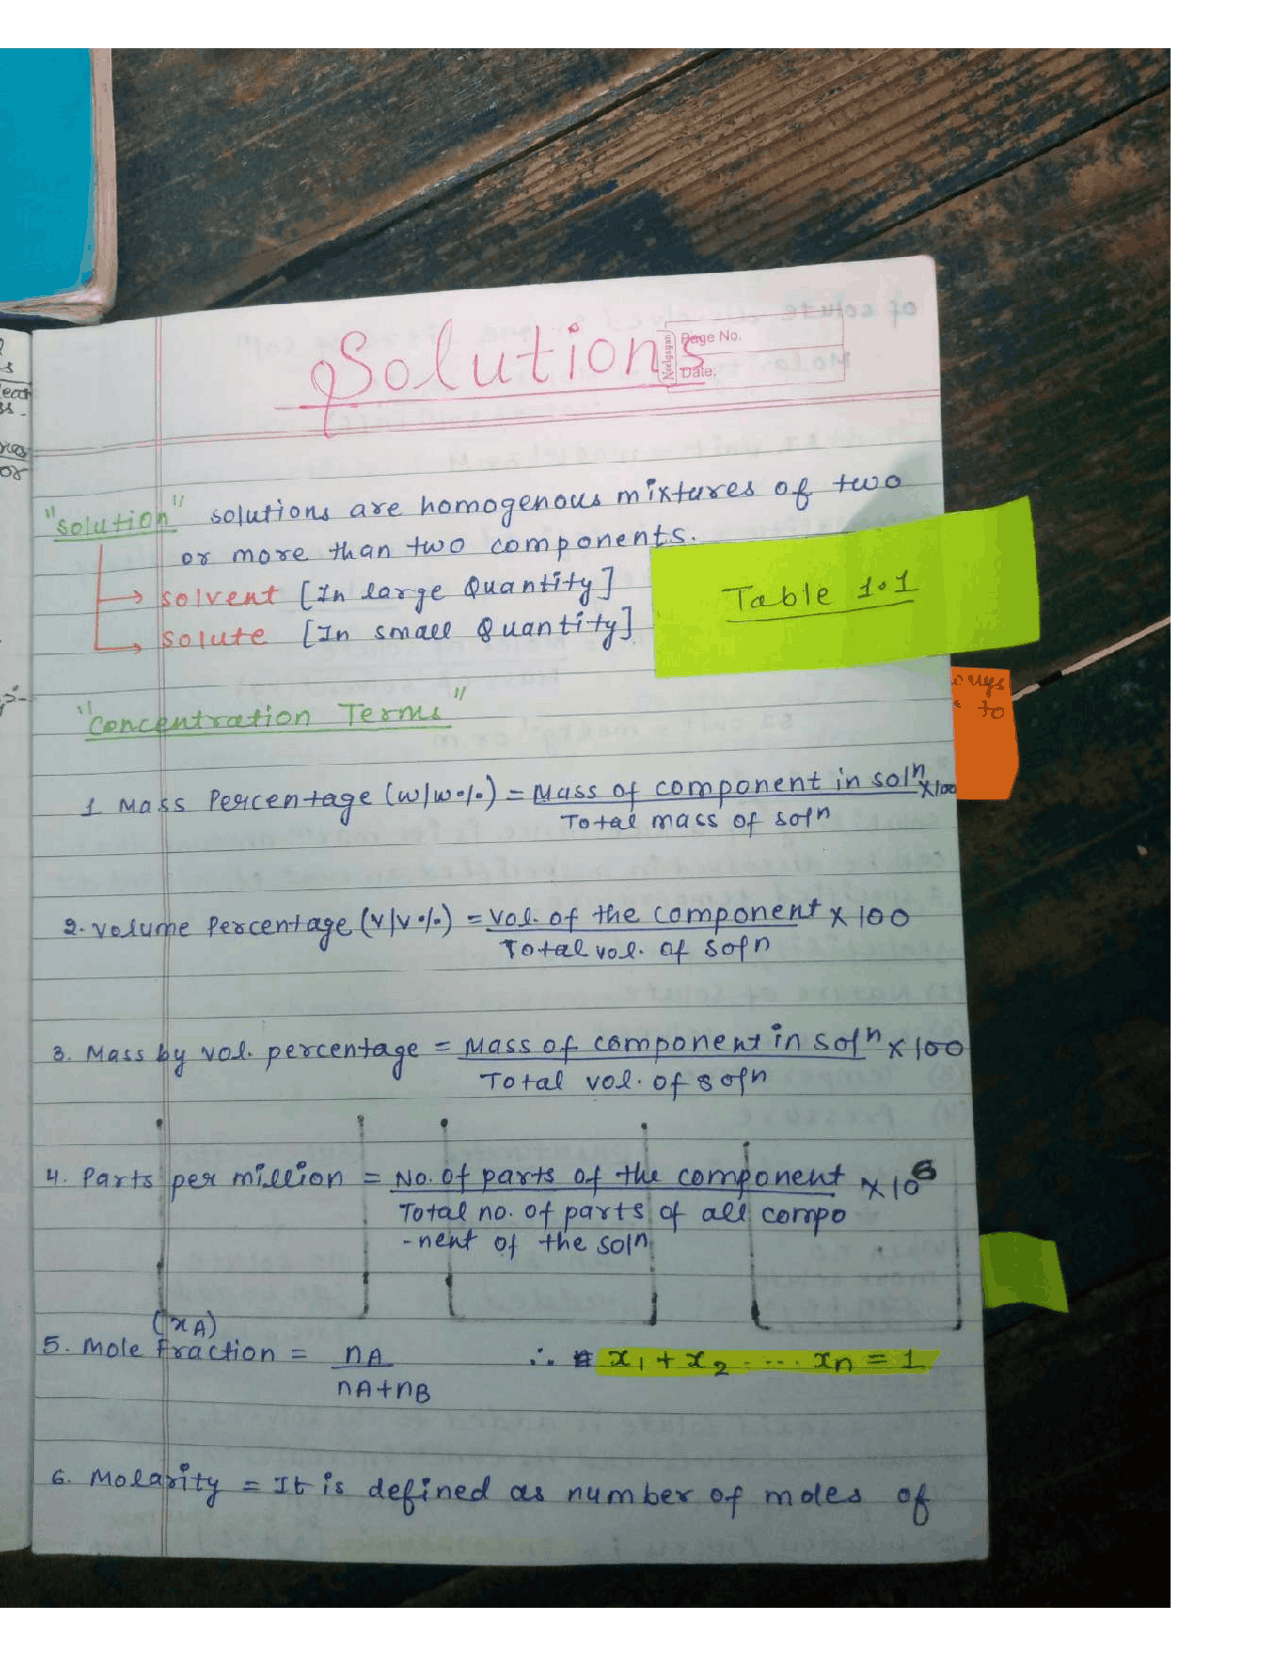 Solutions
Page No.
Date:
Neelgagan
"solution" solutions are homogenous mixtures of two
or more than two components.
→ solvent [In large Quantity]
→ solute [In small Quantity]
Table 1.1
"Concentration Terms"
ouys
to
1 Mass Percentage (w/w%) = Mass of component in soln x100
Total mass of soln
2. volume Percentage (v/v%) = vol. of the component x 100
Total vol. of soln
3. Mass by vol. percentage = Mass of component in soln x 100
Total vol. of soln
4. Parts per million = No. of parts of the component x 10⁶
Total no. of parts of all compo
-nent of the soln
(xA)
5. Mole Fraction = nA ∴ x₁ + x₂ - .... xn = 1
nA+nB
6. Molarity = It is defined as number of moles of